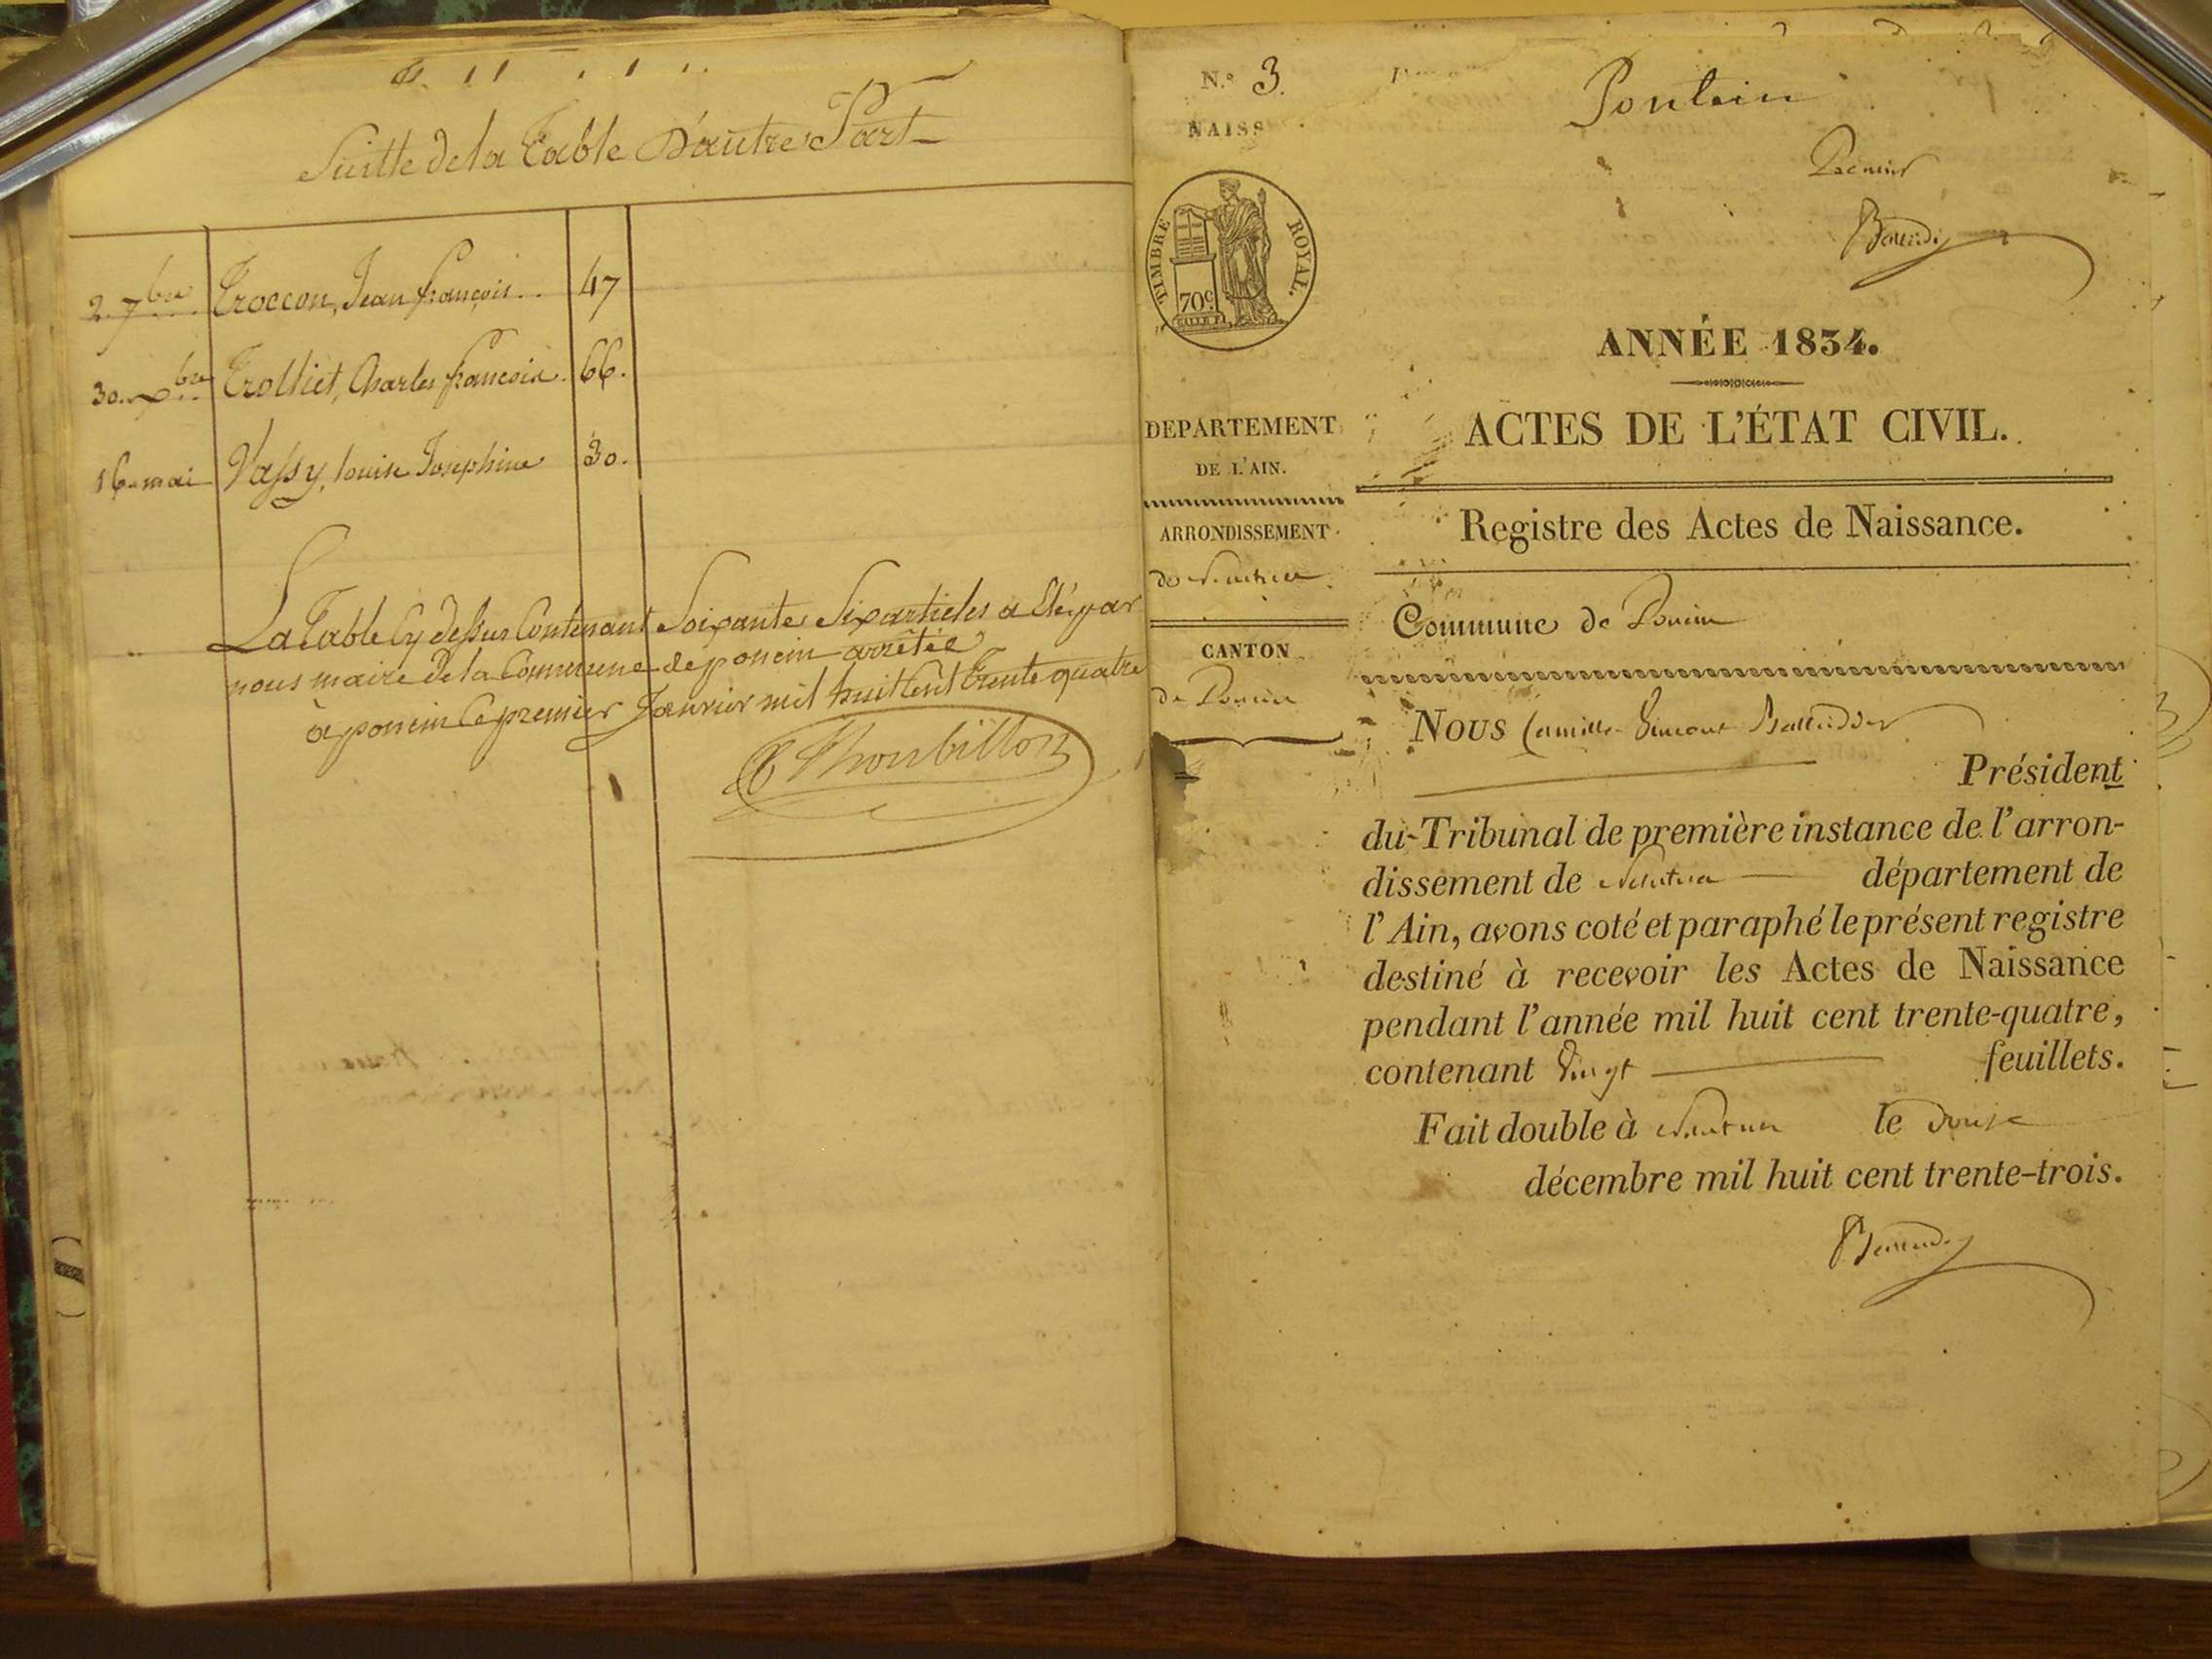 Suitte de la Table D'autre Part
2. 7bre Troccon, Jean françois.. 47
30. xbre Trolliet, Charles françois. 66.
16. mai Vassy, louise Josephine 30.
La Table Cy dessus Contenant Soixante Six articles a Eté par
nous maire de la Commune de poncin arrêtée
à poncin le premier Janvier mil huit Cent trente quatre
Thoubillon
N.º 3.
NAISS
TIMBRE ROYAL.
70c
Poncin
Premier
ANNÉE 1834.
ACTES DE L'ÉTAT CIVIL.
Registre des Actes de Naissance.
DEPARTEMENT
DE L'AIN.
ARRONDISSEMENT
de Nantua
CANTON
de Poncin
Commune de Poncin
NOUS Camille Vincent
Président
du Tribunal de première instance de l'arron-
dissement de Nantua département de
l'Ain, avons coté et paraphé le présent registre
destiné à recevoir les Actes de Naissance
pendant l'année mil huit cent trente-quatre,
contenant Vingt feuillets.
Fait double à Nantua le douze
décembre mil huit cent trente-trois.